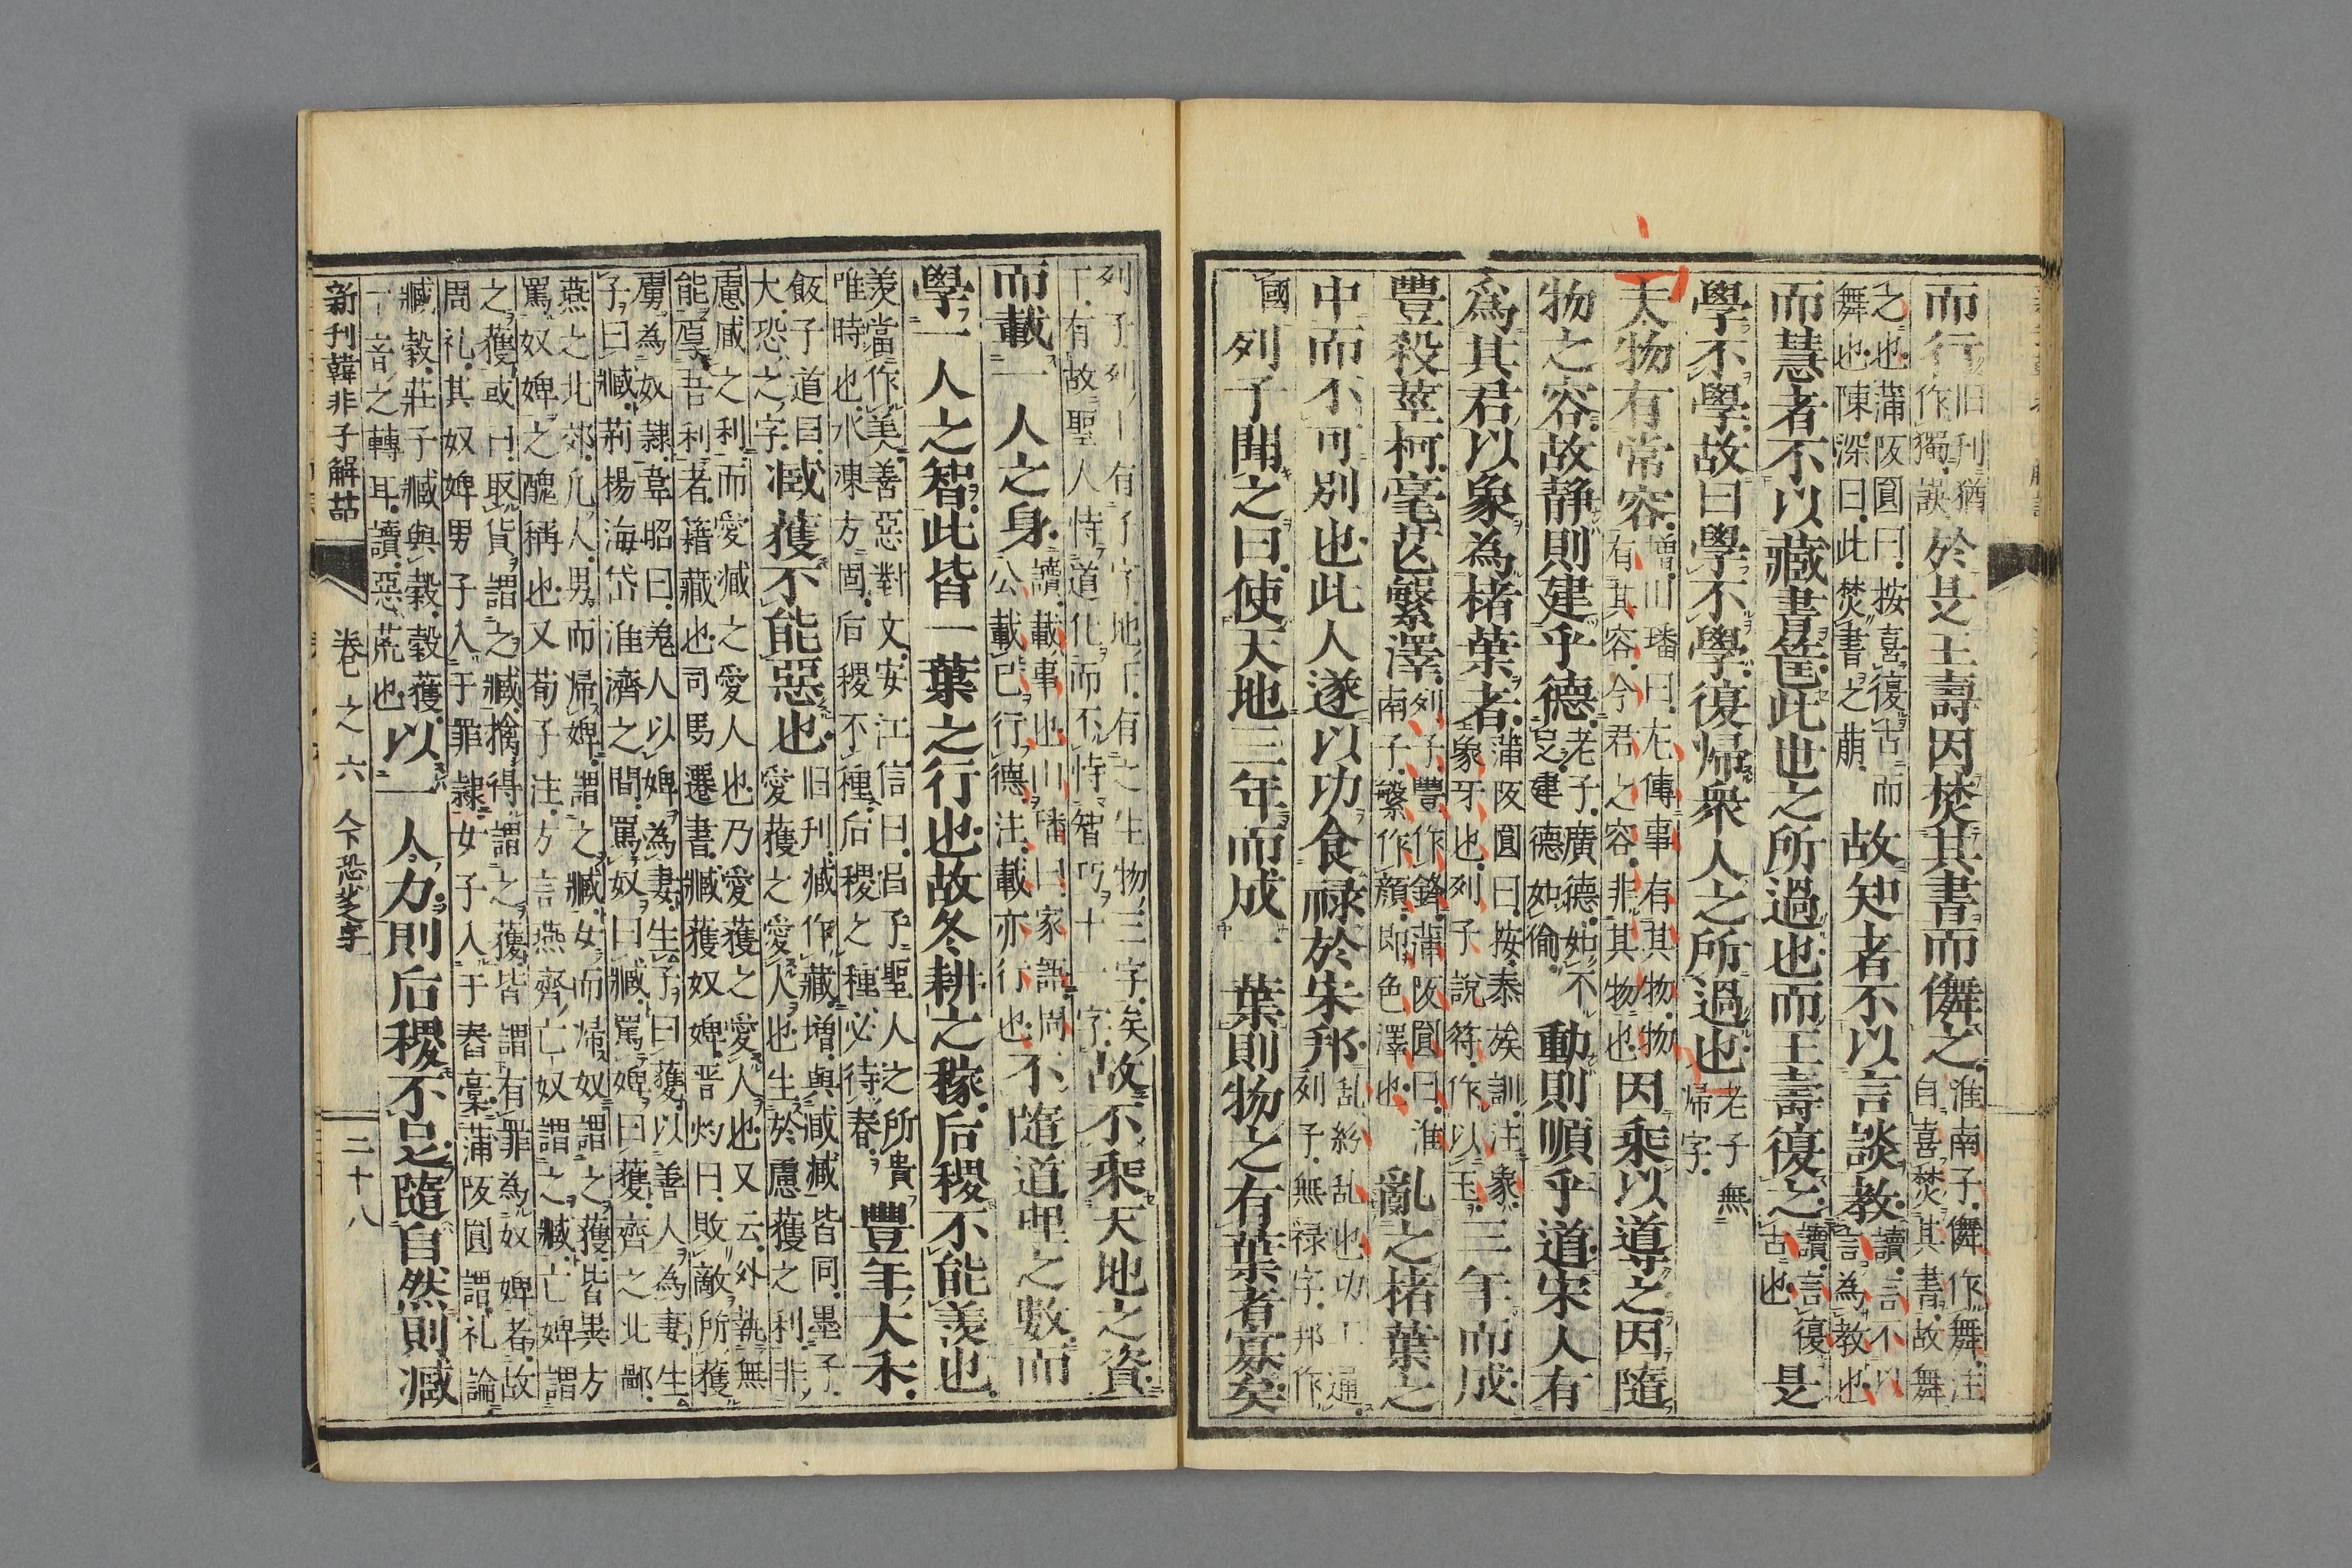 而行旧刊猶作獨誤於是王壽因焚其書而儛之淮南子儛作舞注自喜焚其書故舞
之也蒲阪圓曰按喜復古而舞也陳深曰此焚書之萠故知者不以言談教讀言不以言為教也
而慧者不以藏書篋此世之所過也而王壽復之讀言復古也是
學不學故曰學不學復帰衆人之所過也老子無帰字
夫物有常容増川璠曰左傳事有其物物有其容今君之容非其物也因乘以導之因隨
物之容故静則建乎德老子廣德如不足建德如偷動則順乎道宋人有
為其君以象為楮葉者蒲阪圓曰按泰族訓注象象牙也列子說符作以玉三年而成
豐殺莖柯毫芒繁澤列子豐作鋒蒲阪圓曰淮南子繁作顔即色澤也亂之楮葉之
中而不可別也此人遂以功食禄於宋邦乱紛乱也功工通列子無禄字邦作
國列子聞之曰使天地三年而成一葉則物之有葉者寡矣
列子列上有子字地下有之生物三字矣下有故聖人恃道化而不恃智巧十一字故不乘天地之資
而載一人之身讀載事也川璠曰家語問公載己行德注載亦行也不隨道理之數而
學一人之智此皆一葉之行也故冬耕之稼后稷不能羨也
羨當作美善惡對文安江信曰呂子聖人之所貴唯時也水凍方固后稷不種后稷之種必待春豐年大禾
飯子道曰大恐之字臧獲不能惡也旧刊臧作藏増與臧臧皆同墨子愛獲之愛人也生於慮獲之利非
慮臧之利而愛臧之愛人也乃愛獲之愛人也又云外執無能厚吾利者籍藏也司馬遷書臧獲奴婢晋灼曰敗敵所獲
虜為奴隷韋昭曰羗人以婢為妻生子曰獲以善人為妻生子曰臧荊楊海岱淮濟之間罵奴曰臧罵婢曰獲齊之北鄙
燕之北郊凡人男而帰婢謂之臧女而帰奴謂之獲皆異方罵奴婢之醜稱也又荀子注方言燕齊亡奴謂之臧亡婢謂
之獲或曰取貨謂之臧擒得謂之獲皆謂有罪為奴婢者故周礼其奴婢男子入于罪隷女子入于舂藁蒲阪圓謂礼論
臧穀莊子臧與穀穀獲一音之轉耳讀惡荒也以一人力則后稷不足隨自然則臧
新刊韓非子解詁 卷之六 人下恐芝之字 二十八